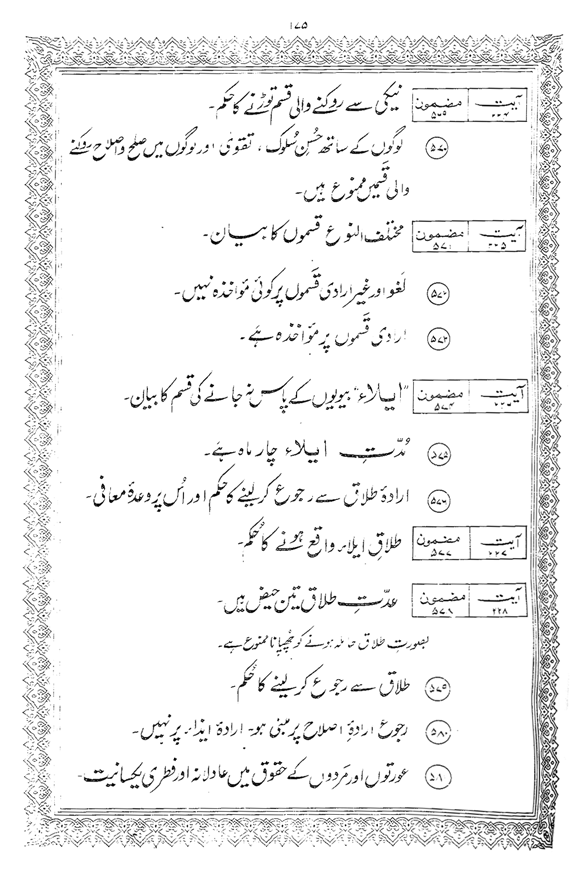 ۱۷۵
آیت ۲۲۴ مضمون ۵۶۹ نیکی سے روکنے والی قسم توڑنے کا حکم۔
۵۷۰ لوگوں کے ساتھ حُسنِ سُلوک ، تقویٰ اور لوگوں میں صلح و اصلاح روکنے
والی قَسمیں ممنوع ہیں۔
آیت ۲۲۵ مضمون ۵۷۱ مختلف النوع قسموں کا بیان۔
۵۷۲ لغو اور غیر ارادی قَسموں پر کوئی مؤاخذہ نہیں۔
۵۷۳ ارادی قَسموں پر مؤاخذہ ہے۔
آیت ۲۲۶ مضمون ۵۷۴ "ایلاء" بیویوں کے پاس نہ جانے کی قسم کا بیان۔
۵۷۵ مُدّتِ ایلاء چار ماہ ہے۔
۵۷۶ ارادۂ طلاق سے رجوع کر لینے کا حکم اور اُس پر وعدۂ معافی۔
آیت ۲۲۷ مضمون ۵۷۷ طلاقِ ایلاء واقع ہونے کا حُکم۔
آیت ۲۲۸ مضمون ۵۷۸ عدّتِ طلاق تین حیض ہیں۔
بصورتِ طلاق حاملہ ہونے کو چُھپانا ممنوع ہے۔
۵۷۹ طلاق سے رجوع کر لینے کا حُکم۔
۵۸۰ رجوع ارادۂ اصلاح پر مبنی ہو۔ ارادۂ ایذاء پر نہیں۔
۵۸۱ عورتوں اور مَردوں کے حقوق میں عادلانہ اور فطری یکسانیت۔